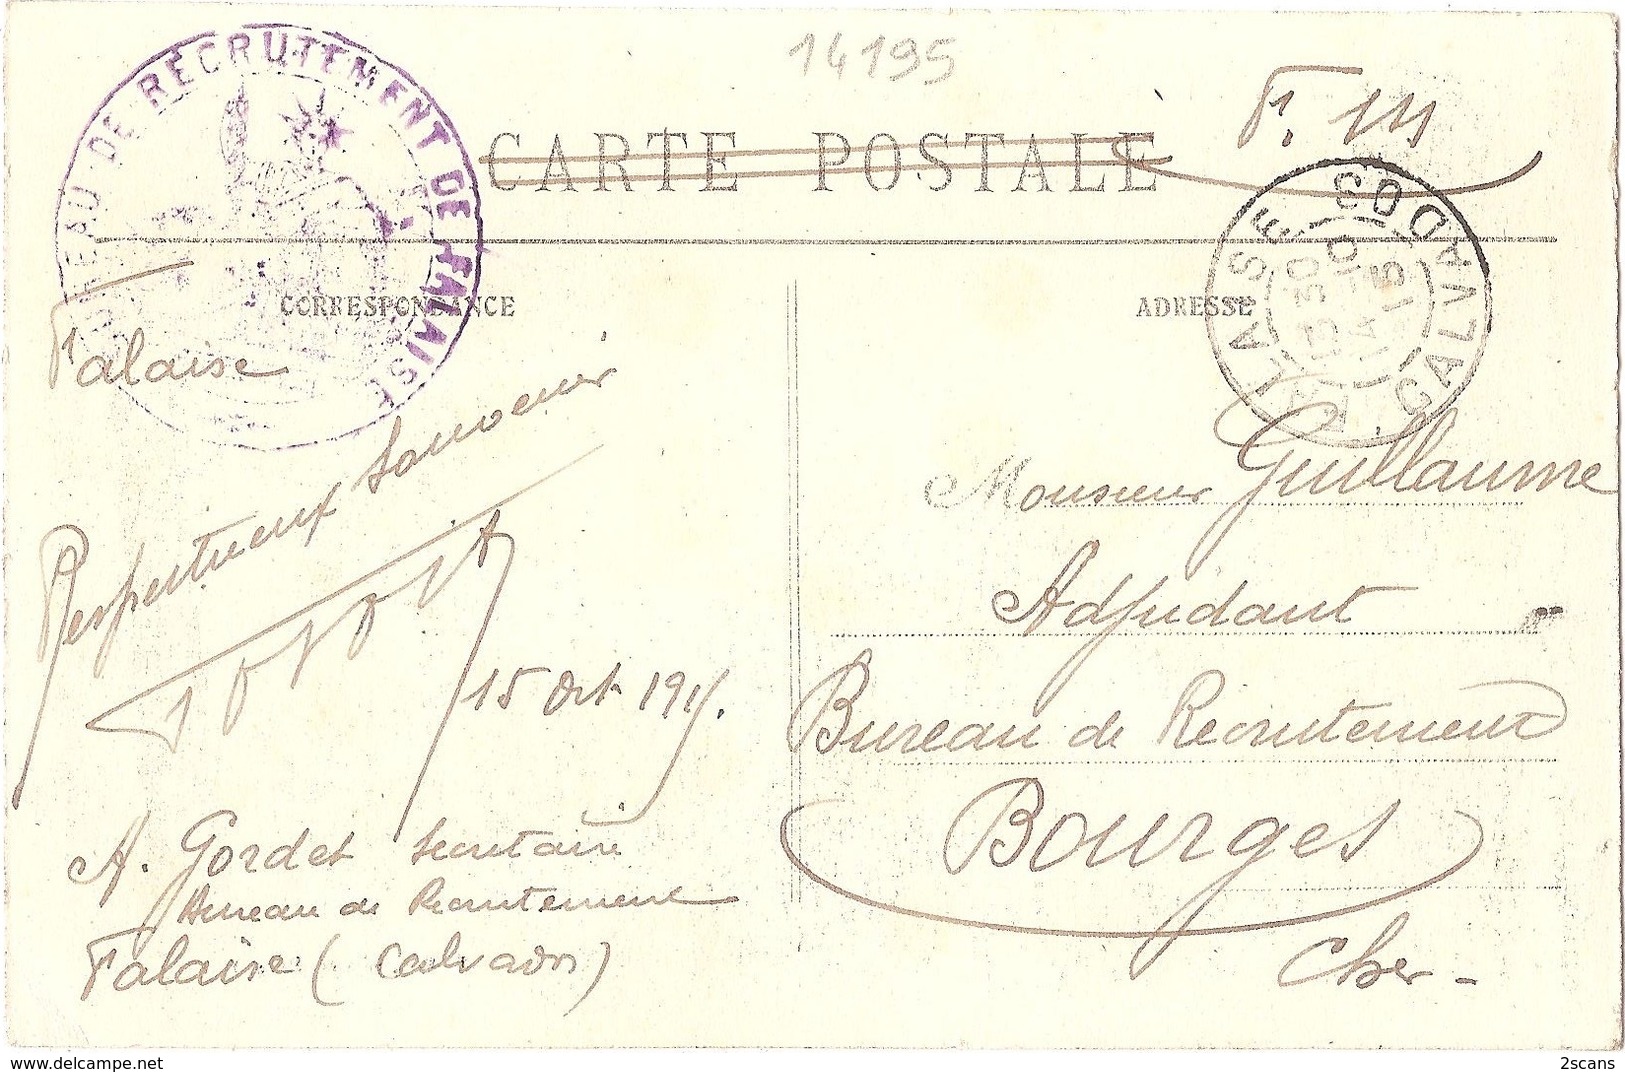 14195
F. M
CARTE POSTALE
BUREAU DE RECRUTEMENT DE FALAISE
FALAISE CALVADOS
13 30
14 10
15
CORRESPONDANCE
ADRESSE
Falaise
Respectueux Souvenir
15 Oct 1915.
A. Gordet Secrétaire
Bureau de Recrutement
Falaise (Calvados)
Monsieur Guillaume
Adjudant
Bureau de Recrutement
Bourges
Cher -
www.delcampe.net
2scans